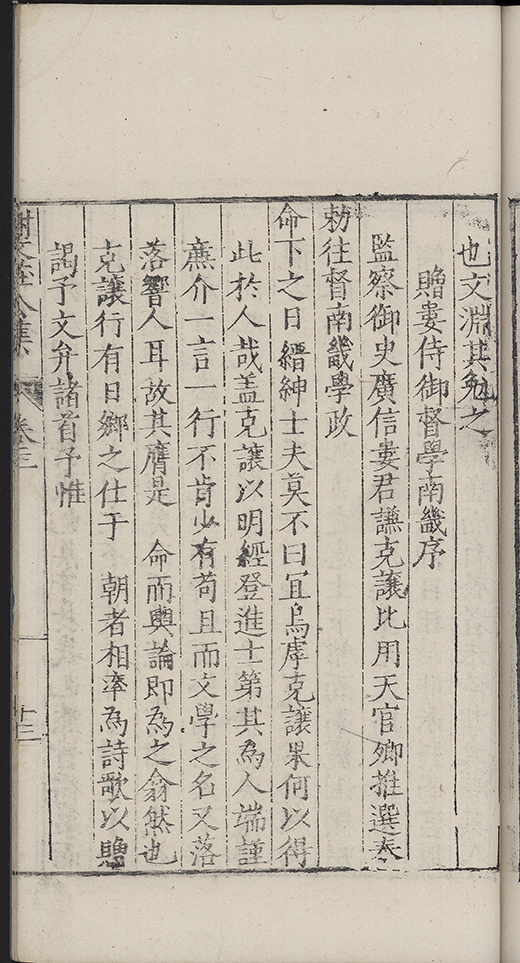 也文淵其勉之
贈婁侍御督學南畿序
監察御史廣信婁君謙克讓比用天官卿推選奏
勑往督南畿學政
命下之日縉紳士夫莫不曰宜烏虖克讓果何以得
此於人哉盖克讓以明經登進士第其為人端謹
亷介一言一行不肯少有苟且而文學之名又落
落響人耳故其膺是 命而輿論即為之翕然也
克讓行有日鄉之仕于 朝者相率為詩歌以贈
謁予文弁諸首予惟
集 卷三 十三